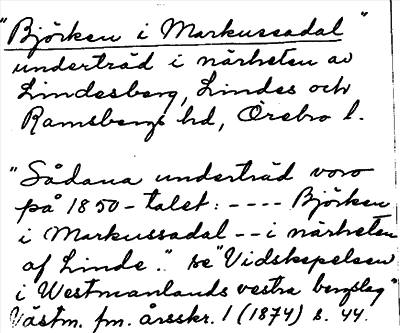 "Björken i Markussadal"
underträd i närheten av
Lindesberg, Lindes och
Ramsbergs hd, Örebro l.
"Sådana underträd voro
på 1850-talet: ---- Björken
i Markussadal -- i närheten
af Linde." se "Vidskepelsen
i Westmanlands vestra bergslag"
Västm. fm. årsskr. 1 (1874) s. 44.